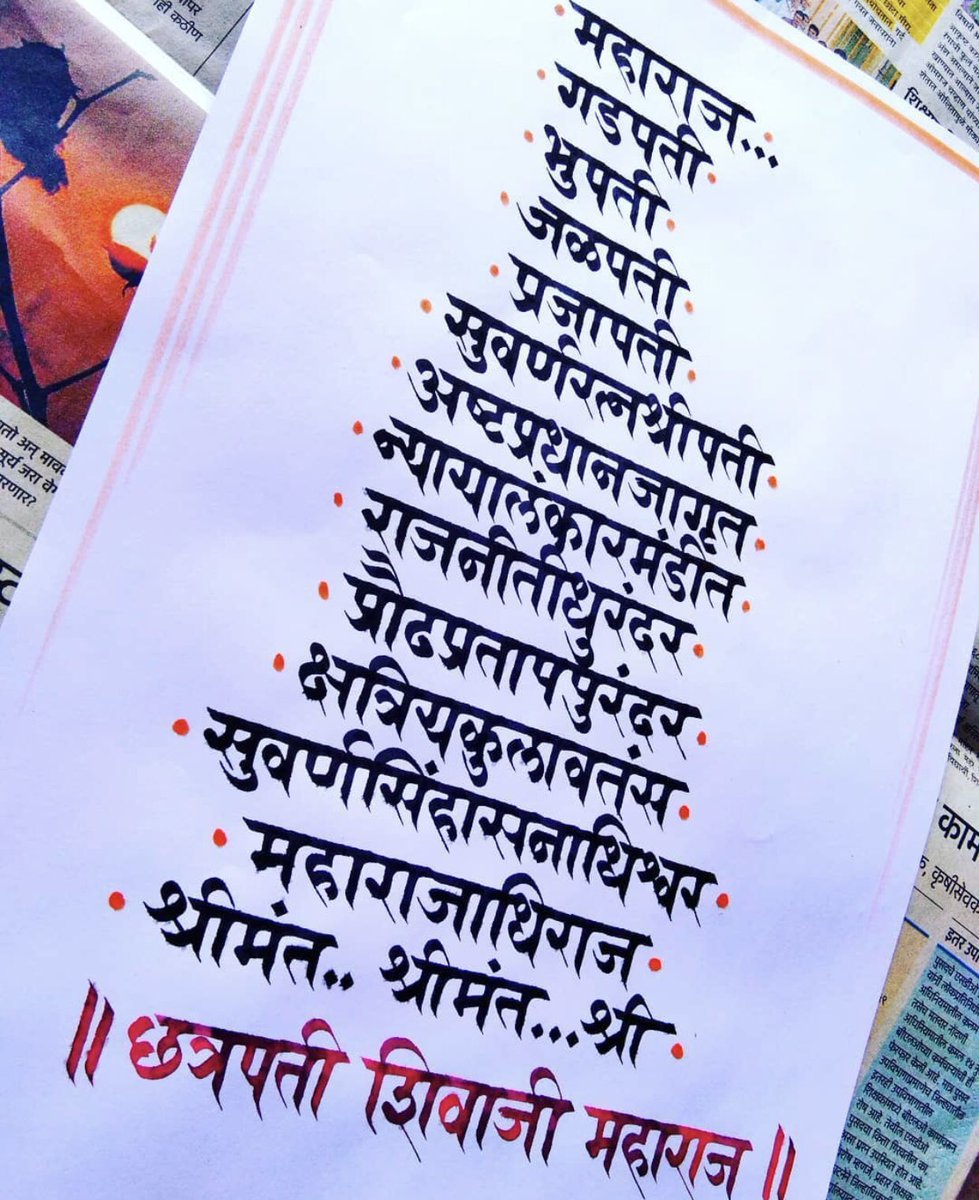 महाराज...
गडपती
भुपती
जळपती
प्रजापती
सुवर्णरत्नश्रीपती
अष्टप्रधानजागृत
न्यायालंकारमंडीत
राजनीतीधुरंदर
प्रौढप्रतापपुरंदर
क्षत्रियकुलावतंस
सुवर्णसिंहासनाधिश्वर
महाराजाधिराज
श्रीमंत.. श्रीमंत...श्री
॥ छत्रपती शिवाजी महाराज ॥